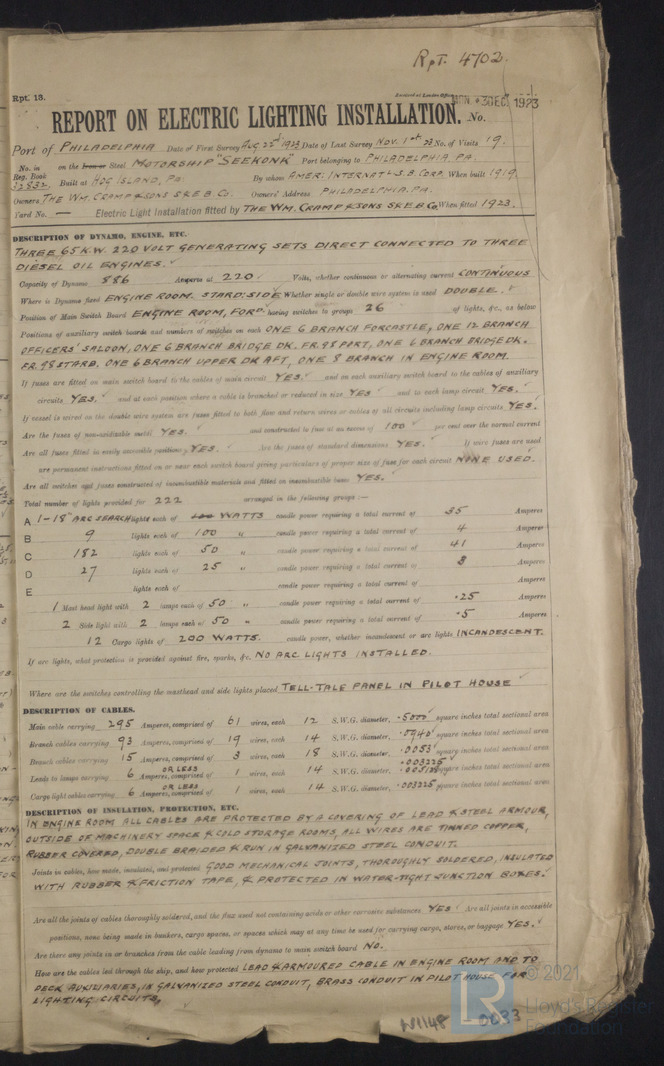 Rpt. 4702.
Rpt. 13.
Received at London Office MON. 3 DEC 1923
REPORT ON ELECTRIC LIGHTING INSTALLATION. No.
Port of PHILADELPHIA Date of First Survey AUG 22d 1923 Date of Last Survey NOV. 1st 23 No. of Visits 19.
No. in Reg. Book 32832. on the Iron or Steel MOTORSHIP "SEEKONK" Port belonging to PHILADELPHIA, PA.
Built at HOG ISLAND, PA. By whom AMER: INTERNAT'L S.B. CORP. When built 1919.
Owners THE WM. CRAMP & SONS S & E B Co. Owners' Address PHILADELPHIA, PA.
Yard No. — Electric Light Installation fitted by THE WM. CRAMP & SONS S & E B Co. When fitted 1923.
DESCRIPTION OF DYNAMO, ENGINE, ETC.
THREE 65 K.W. 220 VOLT GENERATING SETS DIRECT CONNECTED TO THREE
DIESEL OIL ENGINES.
Capacity of Dynamo 886 Amperes at 220 Volts, whether continuous or alternating current CONTINUOUS
Where is Dynamo fixed ENGINE ROOM. STARD: SIDE Whether single or double wire system is used DOUBLE.
Position of Main Switch Board ENGINE ROOM, FORD. having switches to groups 26 of lights, &c., as below
Positions of auxiliary switch boards and numbers of switches on each ONE 6 BRANCH FORCASTLE, ONE 12 BRANCH
OFFICERS' SALOON, ONE 6 BRANCH BRIDGE DK. FR. 98 PORT, ONE 6 BRANCH BRIDGE DK.
FR. 98 STARB. ONE 6 BRANCH UPPER DK AFT, ONE 8 BRANCH IN ENGINE ROOM.
If fuses are fitted on main switch board to the cables of main circuit YES. and on each auxiliary switch board to the cables of auxiliary
circuits YES. and at each position where a cable is branched or reduced in size YES and to each lamp circuit YES.
If vessel is wired on the double wire system are fuses fitted to both flow and return wires or cables of all circuits including lamp circuits YES.
Are the fuses of non-oxidizable metal YES. and constructed to fuse at an excess of 100 per cent over the normal current
Are all fuses fitted in easily accessible positions YES. Are the fuses of standard dimensions YES. If wire fuses are used
are permanent instructions fitted on or near each switch board giving particulars of proper size of fuse for each circuit NONE USED.
Are all switches and fuses constructed of incombustible materials and fitted on incombustible bases YES.
Total number of lights provided for 222 arranged in the following groups :—
A 1-18" ARC SEARCH lights each of WATTS candle power requiring a total current of 35 Amperes
B 9 lights each of 100 " candle power requiring a total current of 4 Amperes
C 182 lights each of 50 " candle power requiring a total current of 41 Amperes
D 27 lights each of 25 " candle power requiring a total current of 3 Amperes
E lights each of candle power requiring a total current of Amperes
1 Mast head light with 2 lamps each of 50 " candle power requiring a total current of .25 Amperes
2 Side light with 2 lamps each of 50 " candle power requiring a total current of .5 Amperes
12 Cargo lights of 200 WATTS. candle power, whether incandescent or arc lights INCANDESCENT.
If arc lights, what protection is provided against fire, sparks, &c. NO ARC LIGHTS INSTALLED.
Where are the switches controlling the masthead and side lights placed TELL-TALE PANEL IN PILOT HOUSE
DESCRIPTION OF CABLES.
Main cable carrying 295 Amperes, comprised of 61 wires, each 12 S.W.G. diameter, .5000 square inches total sectional area
Branch cables carrying 93 Amperes, comprised of 19 wires, each 14 S.W.G. diameter, .0940 square inches total sectional area
Branch cables carrying 15 Amperes, comprised of 3 wires, each 18 S.W.G. diameter, .0053 square inches total sectional area
Leads to lamps carrying 6 OR LESS Amperes, comprised of 1 wires, each 14 S.W.G. diameter, .003225 square inches total sectional area
Cargo light cables carrying 6 OR LESS Amperes, comprised of 1 wires, each 14 S.W.G. diameter, .003225 square inches total sectional area
DESCRIPTION OF INSULATION, PROTECTION, ETC.
IN ENGINE ROOM ALL CABLES ARE PROTECTED BY A COVERING OF LEAD & STEEL ARMOUR,
OUTSIDE OF MACHINERY SPACE & COLD STORAGE ROOMS, ALL WIRES ARE TINNED COPPER,
RUBBER COVERED, DOUBLE BRAIDED & RUN IN GALVANIZED STEEL CONDUIT.
Joints in cables, how made, insulated, and protected GOOD MECHANICAL JOINTS, THOROUGHLY SOLDERED, INSULATED
WITH RUBBER & FRICTION TAPE, & PROTECTED IN WATER-TIGHT JUNCTION BOXES.
Are all the joints of cables thoroughly soldered, and the flux used not containing acids or other corrosive substances YES Are all joints in accessible
positions, none being made in bunkers, cargo spaces, or spaces which may at any time be used for carrying cargo, stores, or baggage YES.
Are there any joints in or branches from the cable leading from dynamo to main switch board NO.
How are the cables led through the ship, and how protected LEAD & ARMOURED CABLE IN ENGINE ROOM AND TO
DECK AUXILIARIES, IN GALVANIZED STEEL CONDUIT, BRASS CONDUIT IN PILOT HOUSE FOR
LIGHTING CIRCUITS,
W1148 - 0033
© 2021
LR
Lloyd's Register
Foundation